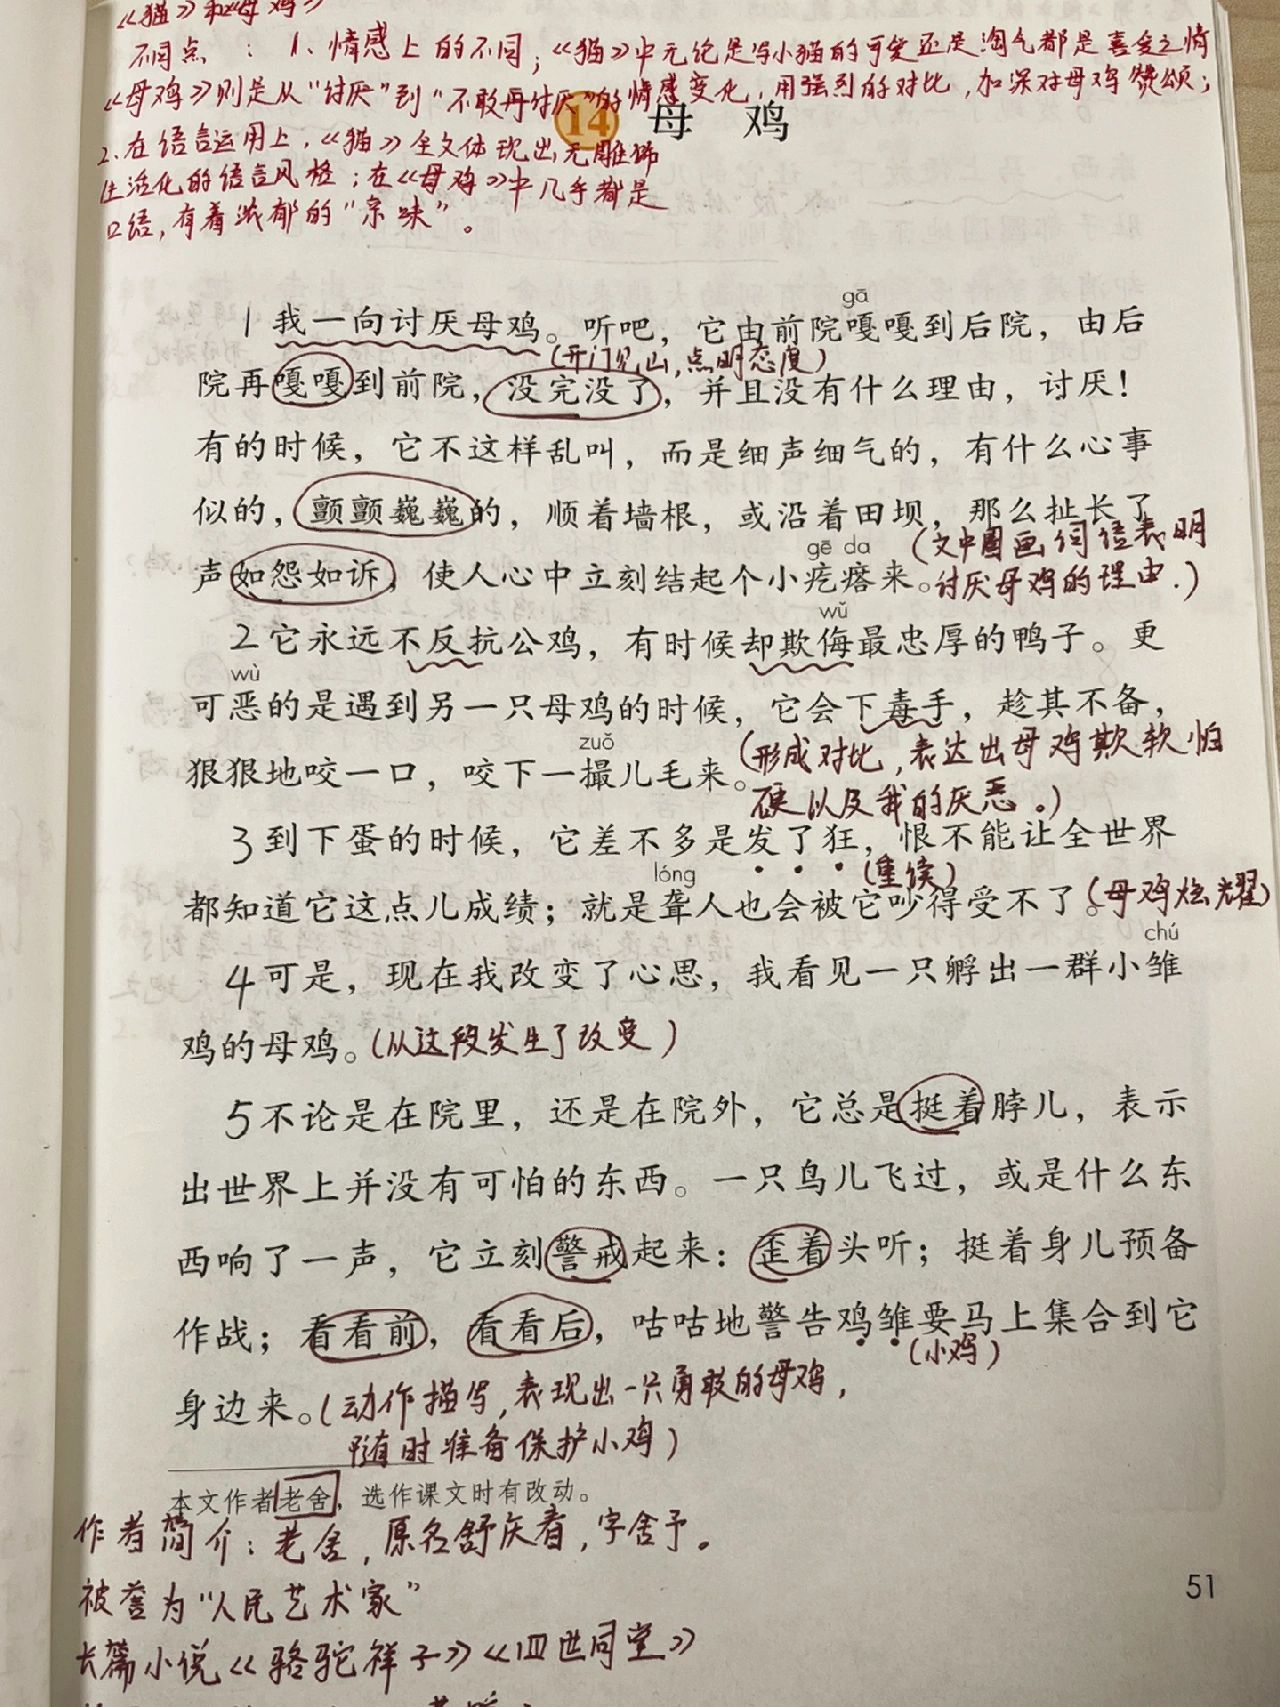 《猫》和《母鸡》
不同点：1、情感上的不同；《猫》中无论是写小猫的可爱还是淘气都是喜爱之情
《母鸡》则是从“讨厌”到“不敢再讨厌”的情感变化，用强烈的对比，加深对母鸡赞颂；
14 母鸡
2、在语言运用上，《猫》全文体现出无雕饰
生活化的语言风格；在《母鸡》中几乎都是
口语，有着浓郁的“京味”。
gā
1我一向讨厌母鸡。听吧，它由前院嘎嘎到后院，由后
(开门见山，点明态度)
院再嘎嘎到前院，没完没了，并且没有什么理由，讨厌！
有的时候，它不这样乱叫，而是细声细气的，有什么心事
似的，颤颤巍巍的，顺着墙根，或沿着田坝，那么扯长了
gē da
(文中圈画词语表明
声如怨如诉，使人心中立刻结起个小疙瘩来。讨厌母鸡的理由.)
wǔ
2它永远不反抗公鸡，有时候却欺侮最忠厚的鸭子。更
wù
可恶的是遇到另一只母鸡的时候，它会下毒手，趁其不备，
zuǒ
狠狠地咬一口，咬下一撮儿毛来。(形成对比，表达出母鸡欺软怕
硬以及我的厌恶。)
3到下蛋的时候，它差不多是发了狂，恨不能让全世界
lóng
(重读)
都知道它这点儿成绩；就是聋人也会被它吵得受不了。(母鸡炫耀)
chú
4可是，现在我改变了心思，我看见一只孵出一群小雏
鸡的母鸡。(从这段发生了改变)
5不论是在院里，还是在院外，它总是挺着脖儿，表示
出世界上并没有可怕的东西。一只鸟儿飞过，或是什么东
西响了一声，它立刻警戒起来：歪着头听；挺着身儿预备
作战；看看前，看看后，咕咕地警告鸡雏要马上集合到它
(小鸡)
身边来。(动作描写，表现出一只勇敢的母鸡，
随时准备保护小鸡)
本文作者老舍，选作课文时有改动。
作者简介：老舍，原名舒庆春，字舍予。
51
被誉为“人民艺术家”
长篇小说《骆驼祥子》《四世同堂》